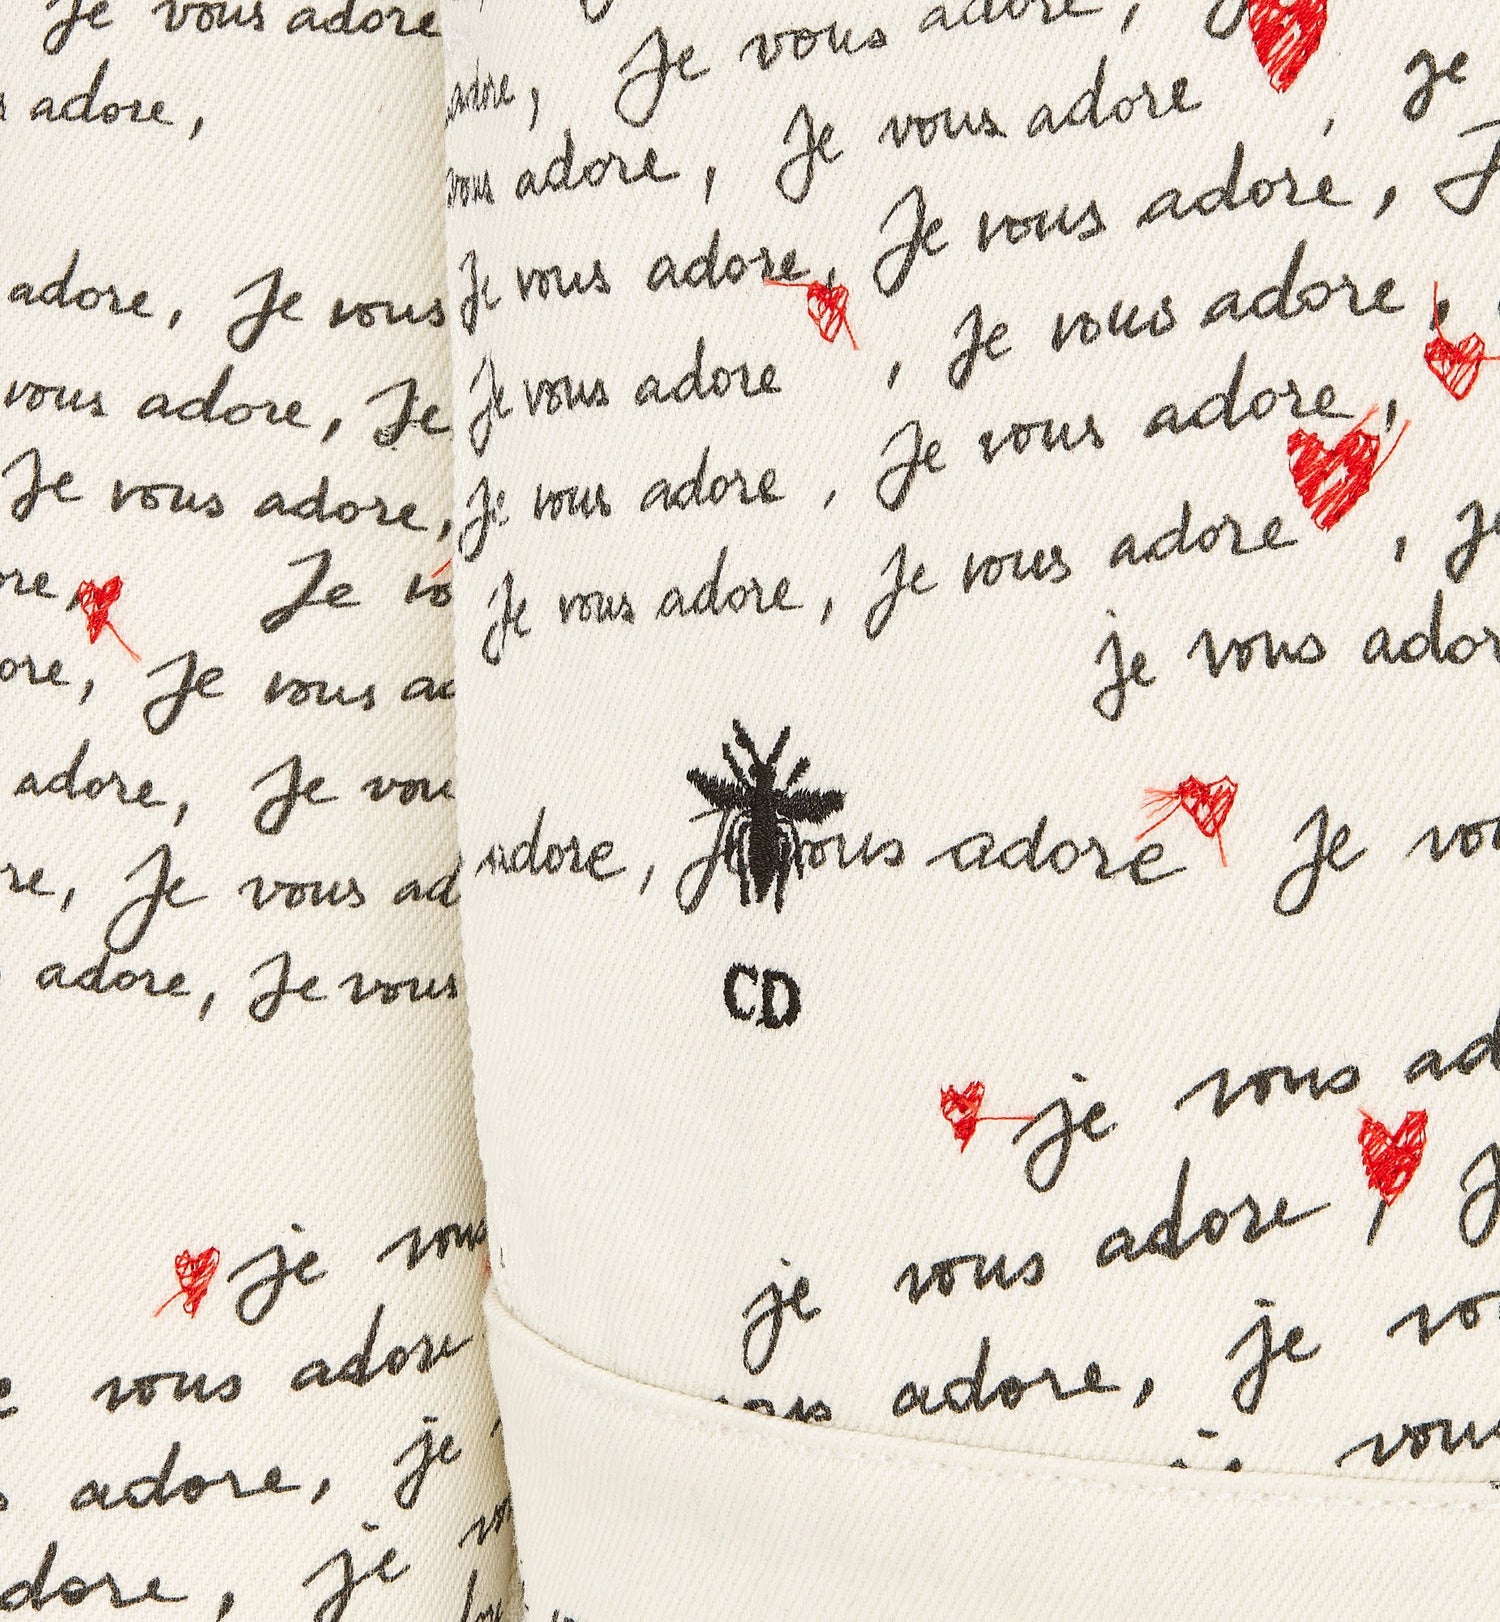 Je vous adore
adore,
adore, Je vous
vous adore, Je
Je vous adore,
Je
Je vous
adore, Je
Je vous
adore, Je vous
je
vous adore
adore, je
je
Je vous adore,
adore, Je vous adore, je
vous adore, Je vous adore,
Je vous adore, Je vous adore,
Je vous adore, Je vous adore,
Je vous adore, Je vous adore, je
Je vous adore, Je vous adore,
je vous
adore, vous adore Je
CD
je vous
je vous adore,
adore, je
vous